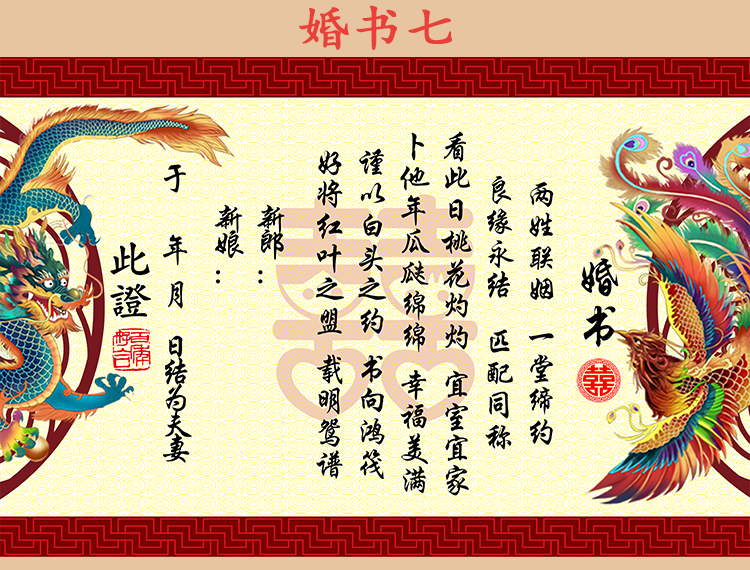 婚书七
婚书
囍
两姓联姻 一堂缔约
良缘永结 匹配同称
看此日桃花灼灼 宜室宜家
卜他年瓜瓞绵绵 幸福美满
谨以白头之约 书向鸿笺
好将红叶之盟 载明鸳谱
新郎：
新娘：
于 年 月 日结为夫妻
此證
百年好合
囍